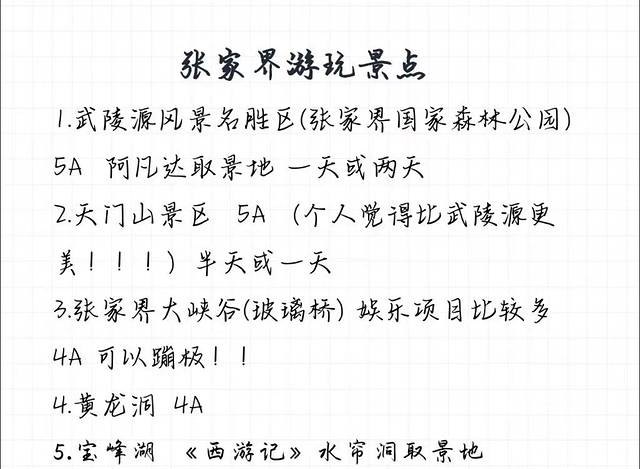 张家界游玩景点
1.武陵源风景名胜区(张家界国家森林公园)
5A 阿凡达取景地 一天或两天
2.天门山景区 5A (个人觉得比武陵源更
美！！！) 半天或一天
3.张家界大峡谷(玻璃桥) 娱乐项目比较多
4A 可以蹦极！！
4.黄龙洞 4A
5.宝峰湖 《西游记》水帘洞取景地